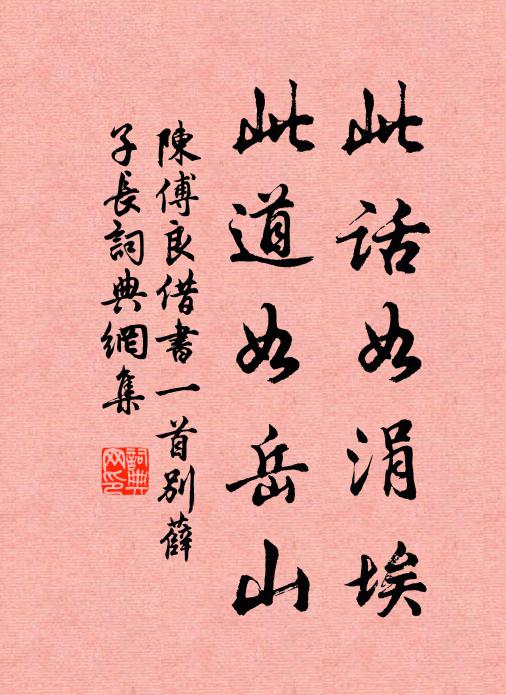 此话如涓埃
此道如岳山
陳傅良借書一首别薛
子長詞典網集
詞典网印